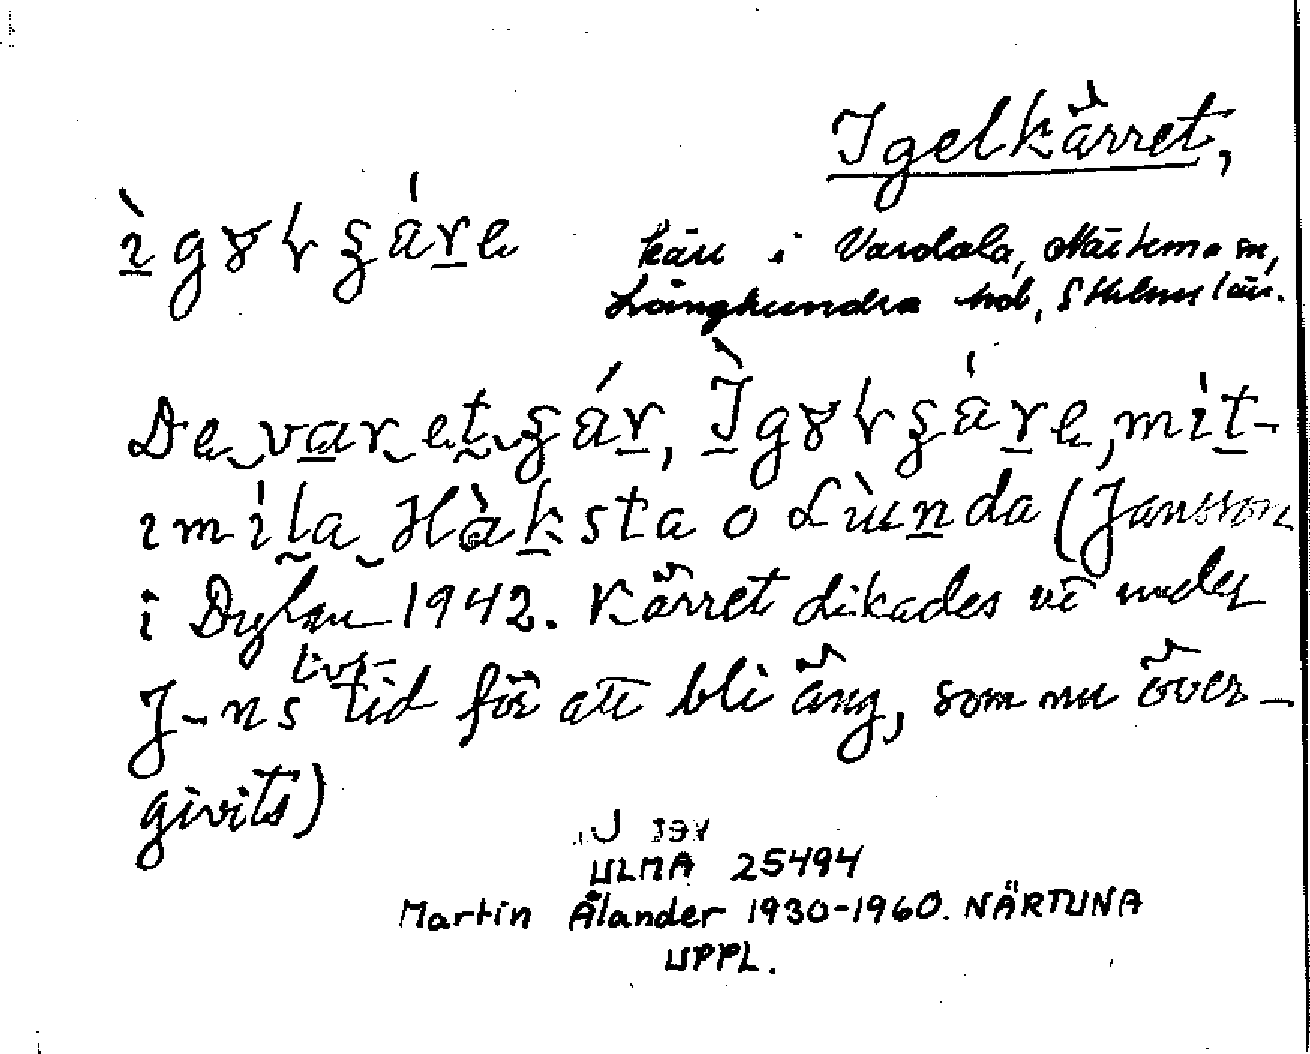 Igelkärret,
ìgɤlʂáre
kärr i Vardala, Närtuna sn,
Långhundra hd, Sthlms län.
De var et ʂár, Ìgɤlʂáre, mit-
i míla Hàksta o Lùnda (Jansson
i Dyhan 1942. Kärret dikades ut under
J-ns livstid för att bli äng, som nu över-
givits)
ULMA 25494
Martin Ålander 1930-1960. NÄRTUNA
UPPL.